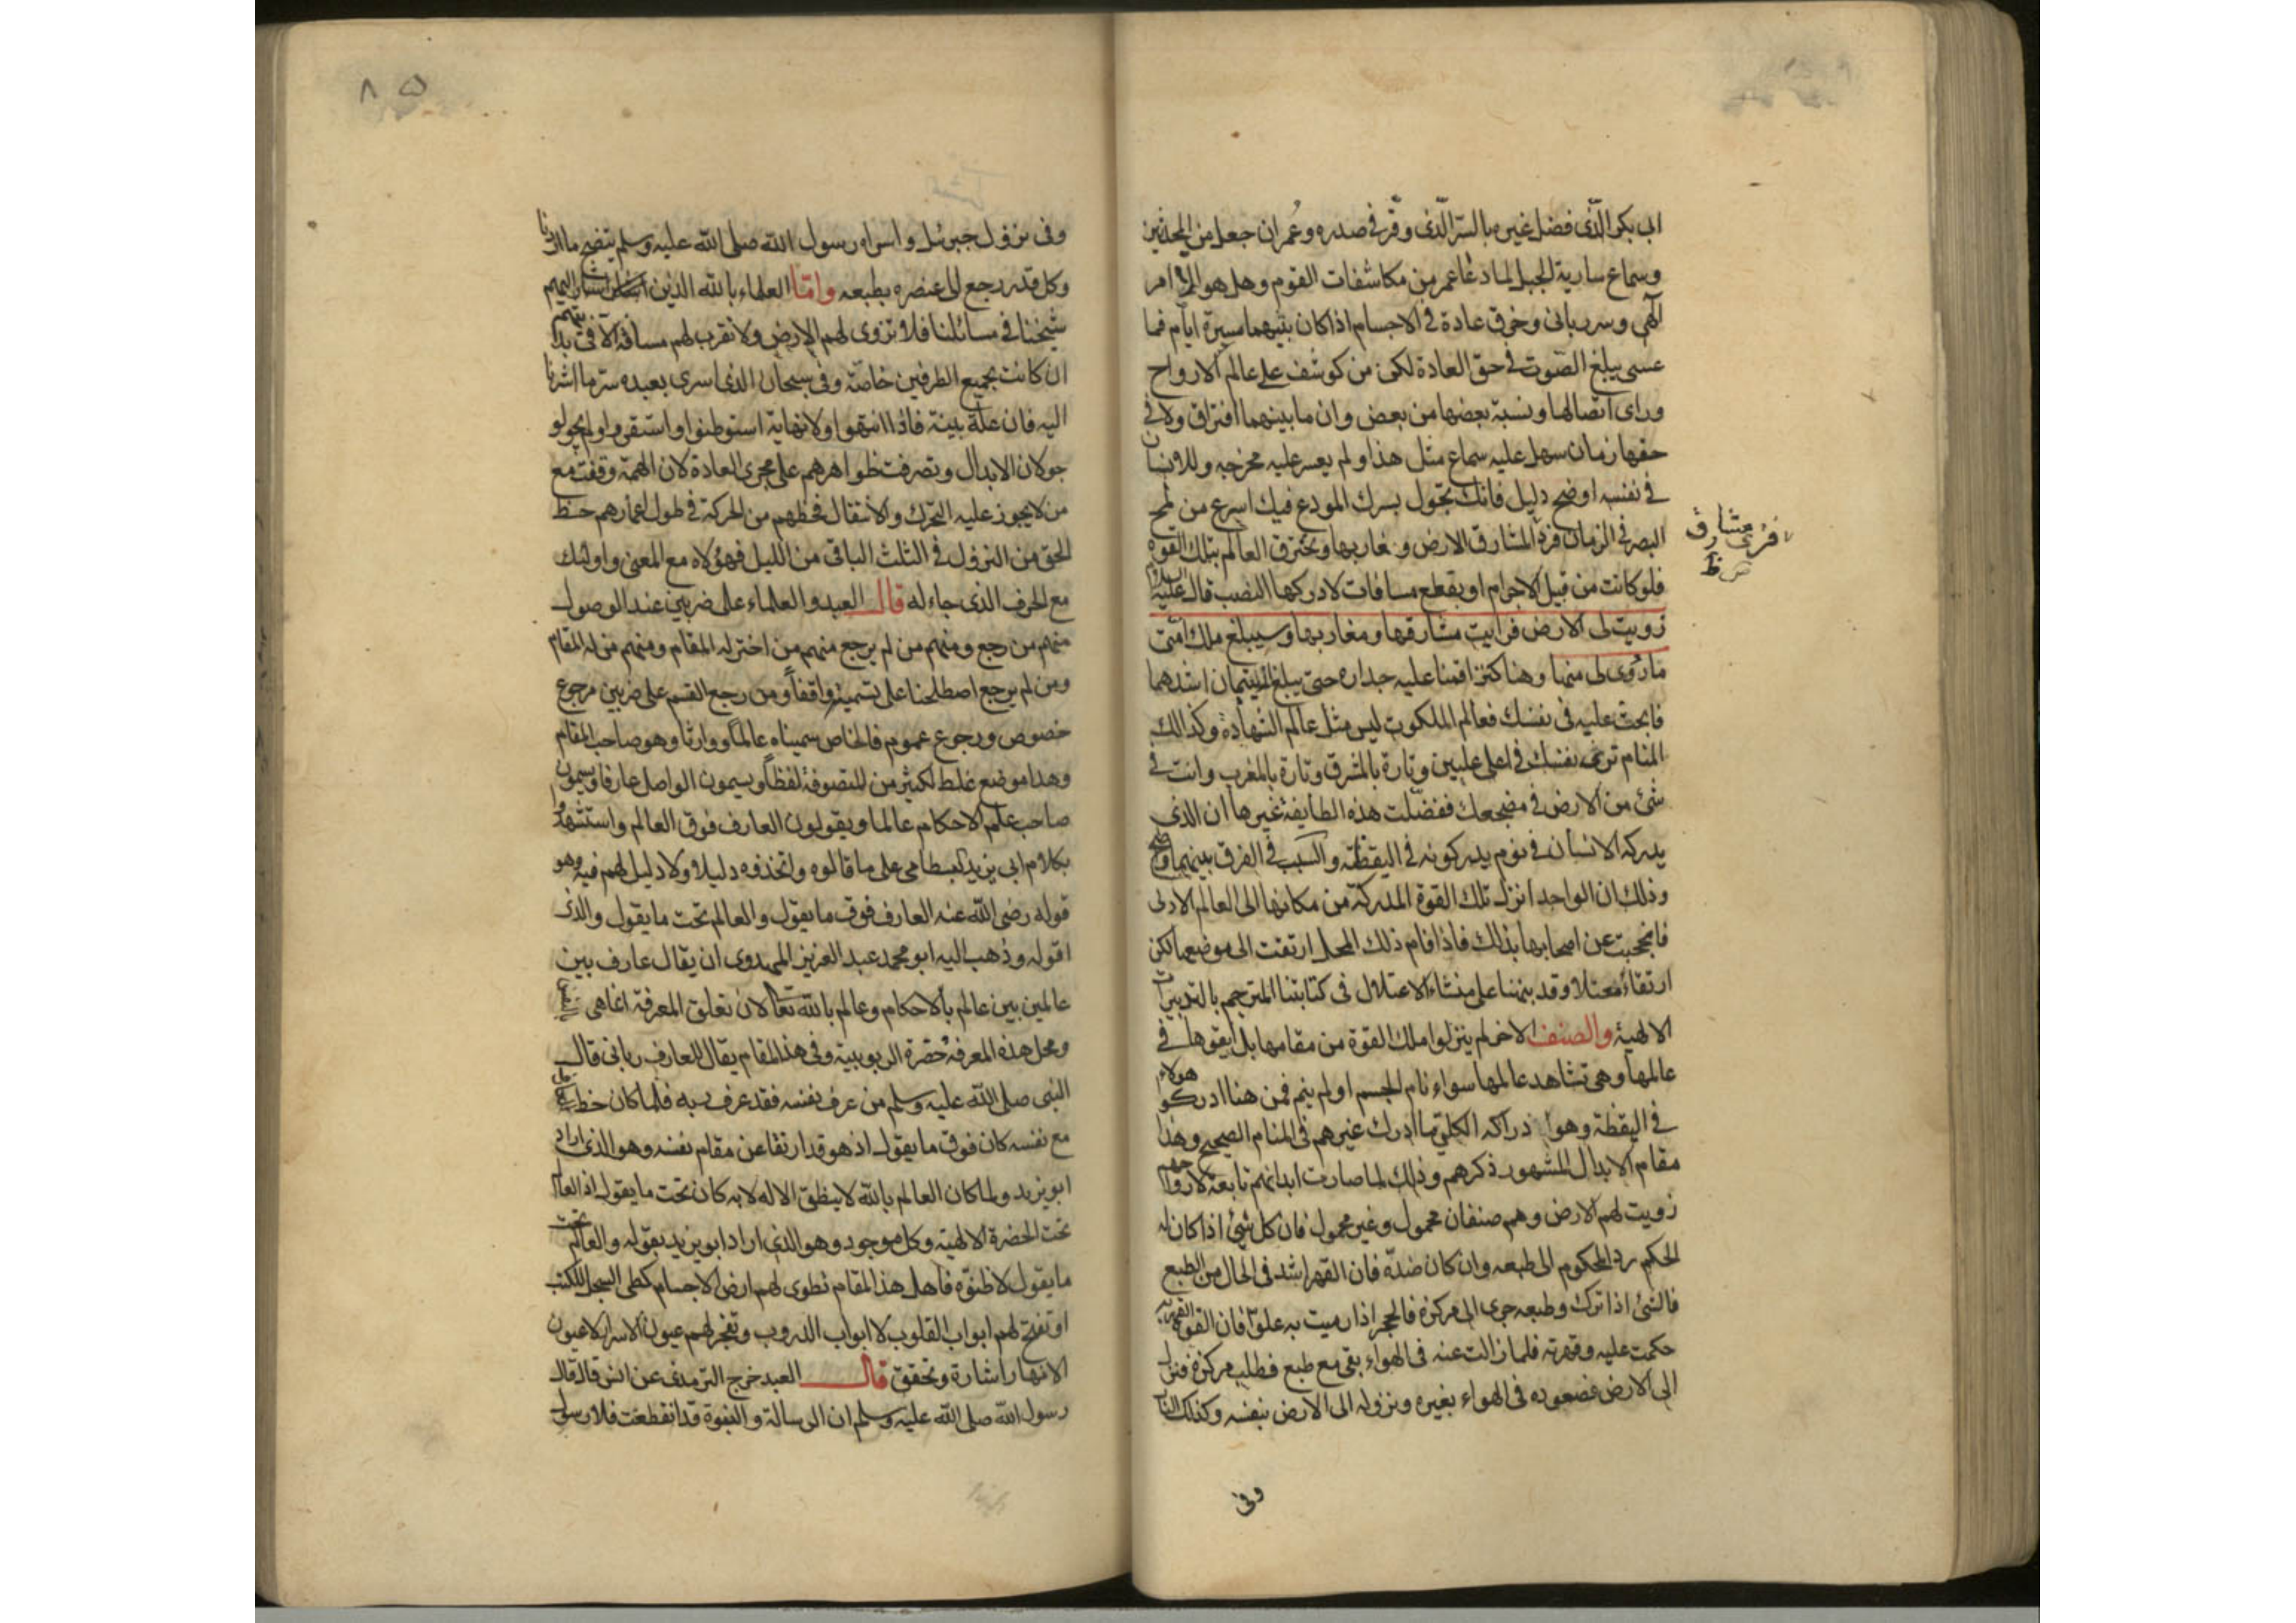 ابى بكر الذى فضل غيره بالسر الذى وقر فى صدره وعمر ان جعل من المحدثين
وسماع سارية الجبل لما دعا عمر من مكاشفات القوم وهل هو الا امر
آلهى وسر ربانى وخرق عادة فى الاجسام اذا كان بينهما مسيرة ايام فما
عسى يبلغ الصوت فى حق العادة لكن من كوشف على عالم الارواح
وراى اتصالها ونسبة بعضها من بعض وان ما بينهما افتراق ولا فى
حقها زمان سهل عليه سماع مثل هذا ولم يعسر عليه مخرجه وللانسان
فى نفسه اوضح دليل فانك تجول بسرك المودع فيك اسرع من لمح
البصر فى الزمان فرد المشارق الارض ومغاربها وتخترق العالم بتلك القوة
فلو كانت من قبيل الاجرام او بقطع مسافات لادركها النصب قال عليه
زويت لى الارض فرايت مشارقها ومغاربها وسيبلغ ملك امتى
ما زوى لى منها وهنا كنز اقمنا عليه جداره حتى يبلغ اليتيمان اشدهما
فابحث عليه فى نفسك فعالم الملكوت ليس مثل عالم الشهادة وكذالك
المنام ترى نفسك فى اعلى عليين وتارة بالمشرق وتارة بالمغرب وانت فى
شئ من الارض فى مضجعك ففضلت هذه الطايفة غيرها ان الذى
يدركه الانسان فى نومه يدركونه فى اليقظة والسبب فى الفرق بينهما واضح
وذلك ان الواحد انزل تلك القوة المدركة من مكانها الى العالم الادنى
فانحجبت عن اصحابها بذلك فاذا قام ذلك المحل ارتقت الى موضعها لكن
ارتقاء معتلا وقد بينا على منشاء الاعتلال فى كتابنا المترجم بالتدبيرات
الالهية والصنف الاخر لم ينزلوا ملك القوة من مقامها بل ابقوها فى
عالمها وهى تشاهد عالمها سواء نام الجسم او لم ينم فمن هنا ادركو هولاء
فى اليقظة وهوا ذراكه الكلى ما ادرك غيرهم فى المنام الصحيح وهذا
مقام الابدال المشهور ذكرهم وذلك لما صارت ابدانهم تابعة لارواحهم
زويت لهم الارض وهم صنفان محمول وغير محمول فان كل شئ اذا كان له
الحكم رد المحكوم الى طبعه وان كان ضده فان القهر اشد فى الحال من الطبع
فالشئ اذا ترك وطبعه جرى الى مركزه فالحجر اذا رميت به علوا فان القوة القهرية
حكمت عليه وقهرته فلما زالت عنه فى الهواء بقى مع طبع فطلب مركزه فنزل
الى الارض فصعوده فى الهواء بغيره ونزوله الى الارض بنفسه وكذلك النار
وفى
مشارق
ظ
٨٥
وفى نزول جبرئل واسراء رسول الله صلى الله عليه وسلم يتضح ما اردنا
وكل قد رجع الى عنصره بطبعه واما العلماء بالله الذين اشار اليهم
شيخنا فى مسائلنا فلا تزوى لهم الارض ولا تقرب لهم مسافة الآفى بدايتهم
ان كانت بجميع الطرفين خاصة وفى سبحان الذى اسرى بعبده سر ما اشرنا
اليه فان علة بينة فاذا انتهوا ولا نهاية استوطنوا واستقروا ولم يجولو
جولان الابدال وتصرفت ظواهرهم على مجرى العادة لان الهمة وقفت مع
من لا يجوز عليه التحرك والانتقال فحظهم من الحركة فى طول اعمارهم حظ
الحق من النزول فى الثلث الباقى من الليل فهؤلاء مع المعنى واولئك
مع الحرف الذى جاء له قال العبد والعلماء على ضربين عند الوصول
منهم من رجع ومنهم من لم يرجع منهم من اختزله المقام ومنهم من له المقام
ومن لم يرجع اصطلحنا على تسميته واقفا ومن رجع القسم على ضربين مرجوع
خصوص ورجوع عموم فالخاص سميناه عالما ووارثا وهو صاحب المقام
وهذا موضع غلط لكثير من المتصوفة لفظا ويسمون الواصل عارفا ويسمون
صاحب علم الاحكام عالما ويقولون العارف فوق العالم واستشهدوا
بكلام ابى يزيد البسطامى على ما قالوه واتخذوه دليلا ولا دليل لهم فيه وهو
قوله رضى الله عنه العارف فوق ما يقول والعالم تحت ما يقول والذى
اقوله وذهب اليه ابو محمد عبد العزيز المهدوى ان يقال عارف بين
عالمين بين عالم بالاحكام وعالم بالله تعالى لان تعلق المعرفة انما هى
ومحل هذه المعرفة حضرة الربوبية وفى هذا المقام يقال للعارف ربانى قال
النبى صلى الله عليه وسلم من عرف نفسه فقد عرف ربه فلما كان حظ
مع نفسه كان فوق ما يقول اذ هو قد ارتقا عن مقام نفسه وهو الذى اراد
ابو يزيد ولما كان العالم بالله لا ينطق الا له لا به كان تحت ما يقول اذ العالم
تحت الحضرة الالهية وكل موجود وهو الذى اراد ابو يزيد بقوله والعالم تحت
ما يقول لا ظنوه فاهل هذا المقام تطوى لهم ارض الاجسام كطى السجل للكتب
او تفتح لهم ابواب القلوب لا ابواب الدروب وتفجر لهم عيون الاسرار لا عيون
الانهار اشارة وتحقق قال العبد خرج الترمذى عن انس قال قال
رسول الله صلى الله عليه وسلم ان الرسالة والنبوة قد انقطعت فلا رسول